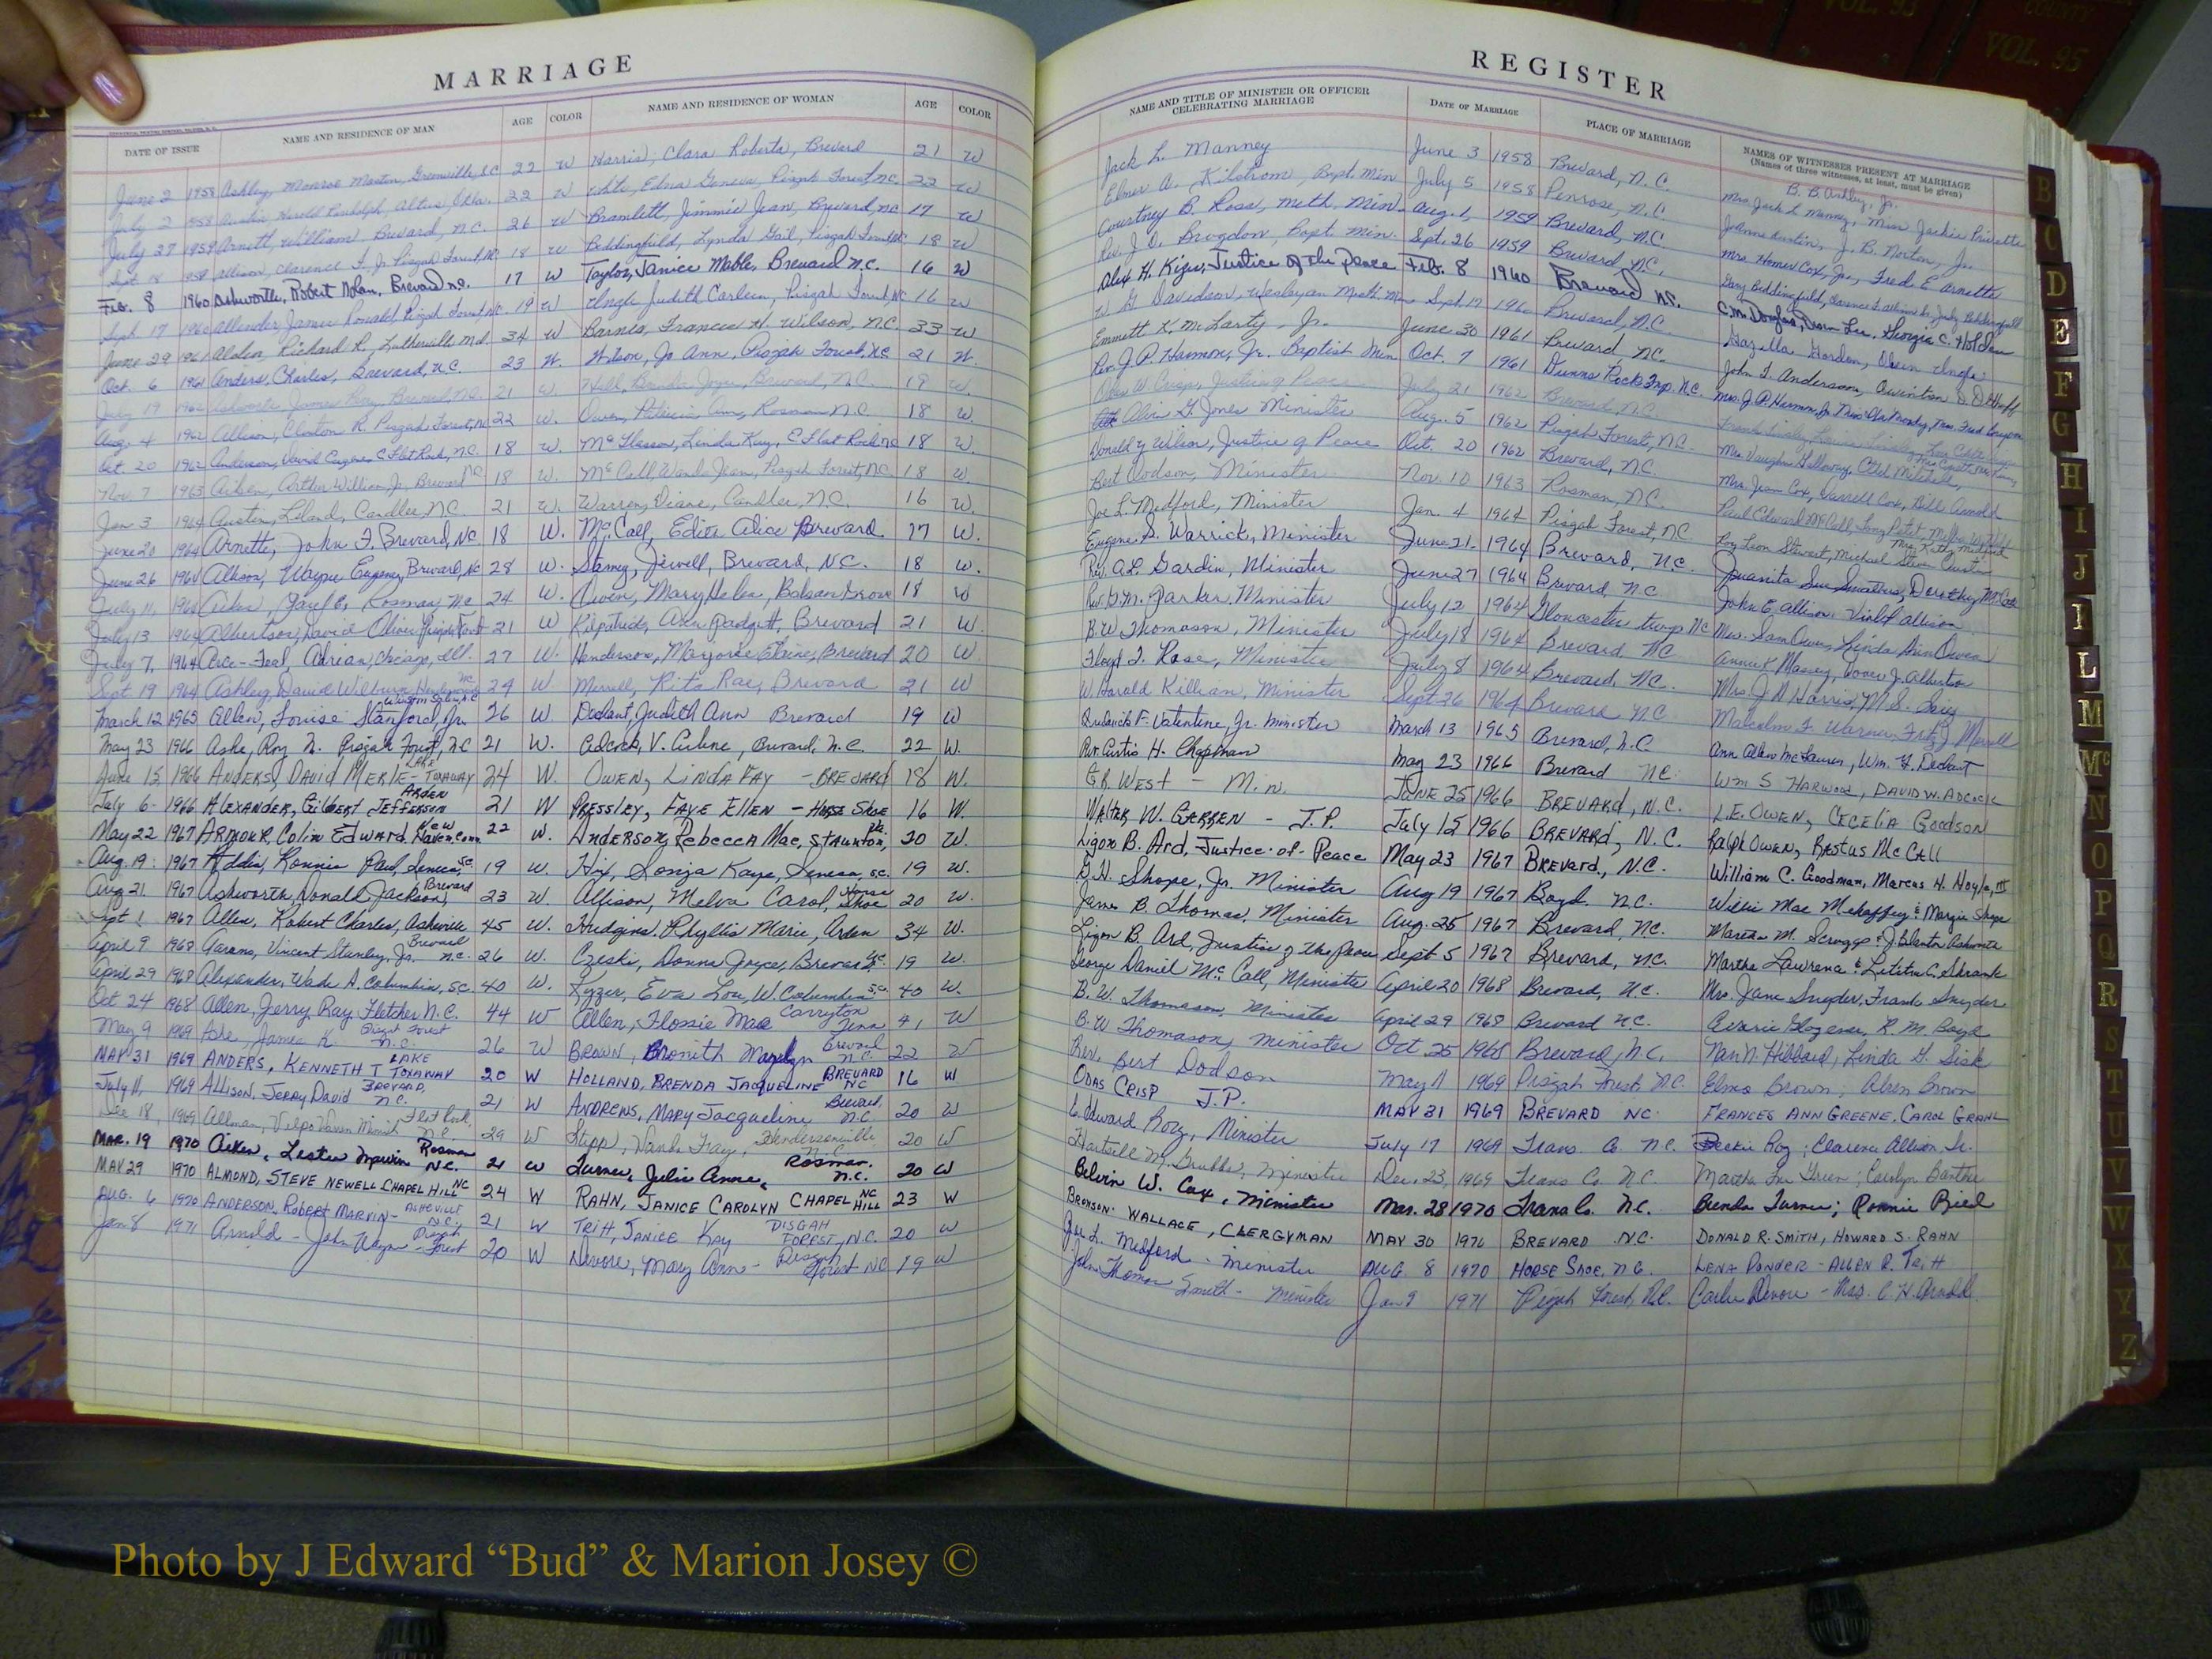 MARRIAGE
DATE OF ISSUE NAME AND RESIDENCE OF MAN AGE COLOR NAME AND RESIDENCE OF WOMAN AGE COLOR
June 2 1958 Ashley, Monroe Greenville, S.C. 22 W Harris, Clara Roberta, Brevard 21 W
July 2 1958 Harold Randolph, Altus, Okla. 22 W Edna Geneva, Pisgah Forest, N.C. 22 W
July 27 1959 Arnett, William Brevard, N.C. 26 W Bramlett, Jimmie Jean, Brevard, N.C. 17 W
Sept. 8 1959 Allison, Clarence F. Jr. Pisgah Forest, N.C. 18 W Beddingfield, Lynda Gail, Pisgah Forest N.C. 18 W
Feb. 8 1960 Ashworth, Robert Nolan, Brevard N.C. 17 W Taylor, Janice Mable, Brevard N.C. 16 W
Sept 17 1960 Allender, James Ronald Pisgah Forest, N.C. 19 W Judith Carleen, Pisgah Forest, N.C. 16 W
June 29 1961 Alden, Richard R., Lutherville Md. 34 W Barnes, Frances H. Wilson, N.C. 33 W
Oct. 6 1961 Anders, Charles, Brevard, N.C. 23 W. Wilson, Jo Ann, Pisgah Forest, N.C. 21 W.
July 19 1962 Ashworth, James Brevard, N.C. 21 W. Hill, Brenda Joyce, Brevard, N.C. 18 W.
Aug. 4 1962 Allison, Clinton R. Pisgah Forest, N.C. 22 W. Owen, Patricia Ann, Rosman N.C. 18 W.
Oct. 20 1962 Anderson, David Eugene E Flat Rock, N.C. 18 W. Linda Kay, E Flat Rock N.C. 18 W.
Nov. 7 1963 Aiken, Arthur William Jr. Brevard N.C. 18 W. McCall, Wanda Jean, Pisgah Forest, N.C. 18 W.
Jan 3 1964 Austin, Leland, Candler, N.C. 21 W. Warren, Diane, Candler, N.C. 16 W.
June 20 1964 Arnette, John F. Brevard, NC 18 W. McCall, Edith Alice Brevard 17 W.
June 26 1964 Allison, Wayne Eugene, Brevard, NC 28 W. Stamey, Jewell, Brevard, N.C. 18 W.
July 11, 1964 Aiken, Rosman, NC 24 W. Owen, Mary Helen, Balsam Grove 18 W
July 13 1964 Albertson, David Oliver Pisgah Forest 21 W Kilpatrick, Padgett, Brevard 21 W.
July 7, 1964 Arce-Feal, Adrian, Chicago, Ill. 27 W. Henderson, Marjorie Elaine, Brevard 20 W.
Sept. 19 1964 Ashley, David Wilburn 24 W Merrell, Rita Rae, Brevard 21 W
March 12 1965 Allen, Louise Stanford, Jr. Winston Salem, N.C. 26 W Dechant, Judith Ann Brevard 19 W
May 23 1966 Ashe, Roy N. Pisgah Forest, N.C 21 W. Adcock, V. Arlene, Brevard, N.C. 22 W.
June 15, 1966 ANDERS, DAVID MERLE - LAKE TOXAWAY 24 W. OWEN, LINDA FAY - BREVARD 18 W.
July 6- 1966 ALEXANDER, GILBERT JEFFERSON ARDEN 21 W PRESSLEY, FAYE ELLEN - HORSE SHOE 16 W.
May 22 1967 ARMOUR, Colin Edward New Haven, Conn. 22 W. Anderson, Rebecca Mae, Staunton, Va. 20 W.
Aug. 19 1967 Addis, Ronnie Paul, Seneca, S.C. 19 W. Hix, Sonja Kaye, Seneca, S.C. 19 W.
Aug 21 1967 Ashworth, Donald Jackson, Brevard 23 W. Allison, Melva Carol, Horse Shoe 20 W.
Sept 1 1967 Allen, Robert Charles, Asheville 45 W. Hudgins, Phyllis Marie, Arden 34 W.
April 9 1968 Aarons, Vincent Stanley, Jr. Brevard N.C. 26 W. Czeski, Donna Joyce, Brevard N.C. 19 W.
April 29 1968 Alexander, Wade A. Columbia, S.C. 40 W. Kyzer, Eva Lou, W. Columbia S.C. 40 W.
Oct 24 1968 Allen, Jerry Ray Fletcher N.C. 44 W Allen, Flossie Mae Carryton Tenn 41 W
May 9 1969 Ashe, James K. Pisgah Forest N.C. 26 W Brown, Bronith Marilyn Brevard N.C. 22 W
MAY 31 1969 ANDERS, KENNETH T LAKE TOXAWAY 20 W HOLLAND, BRENDA JACQUELINE BREVARD NC 16 W
July 11, 1969 Allison, Jerry David Brevard, N.C. 21 W Andrews, Mary Jacqueline Brevard, N.C. 20 W
Dec 18, 1969 Allman, Flat Rock, N.C. 29 W Stepp, Wanda Fray, Hendersonville N.C. 20 W
MAR. 19 1970 Aiken, Lester Marvin Rosman N.C. 21 W Turner, Julia Anne, Rosman, N.C. 20 W
MAY 29 1970 ALMOND, STEVE NEWELL CHAPEL HILL NC 24 W RAHN, JANICE CAROLYN CHAPEL HILL NC 23 W
AUG. 6 1970 ANDERSON, Robert MARVIN - ASHEVILLE N.C. 21 W TRITT, JANICE KAY PISGAH FOREST, N.C. 20 W
Jan 8 1971 Arnold - John Wayne - Pisgah Forest 20 W Devore, Mary Ann - Pisgah Forest NC 19 W
REGISTER
NAME AND TITLE OF MINISTER OR OFFICER CELEBRATING MARRIAGE DATE OF MARRIAGE PLACE OF MARRIAGE NAMES OF WITNESSES PRESENT AT MARRIAGE
(Names of three witnesses, at least, must be given)
B. B. Ashley, Jr.
Jack L. Manney June 3 1958 Brevard, N.C. Mrs. Jack L. Manney, Miss Jackie
Elmer A. Kilstrom, Bapt. Min July 5 1958 Penrose, N.C. Austin, J. B. Norton, Jr.
Courtney B. Ross, Meth. Min. Aug. 1, 1959 Brevard, N.C. Mrs. Homer Cox, Jr., Fred E Arnette
Rev. J. O. Brogdon, Bapt. Min. Sept. 26 1959 Brevard, N.C. Gary Beddingfield, Clarence F. Allison Sr., Judy Beddingfield
Alex H. Kizer, Justice of the peace Feb. 8 1960 Brevard N.C. C.M. Douglas, Dean Lee, Georgia C. Holden
W. G. Davidson, Wesleyan Meth. Min Sept 17 1960 Brevard, N.C.
Emmett K. McLarty, Jr. June 30 1961 Brevard, N.C. John F. Anderson,
Rev. J. P. Harmon, Jr. Baptist Min Oct. 7 1961 Dunns Rock Twp. N.C. Mrs. J. P. Harmon, Jr.
Justice of Peace July 21 1962 Brevard, N.C.
Alvin F. Jones Minister Aug. 5 1962 Pisgah Forest, N.C. Mrs. Vaughn Galloway, Mitchell,
Donald Y. Wilson, Justice of Peace Oct. 20 1962 Brevard, N.C. Mrs. Jean Cox, Darrell Cox, Bill Arnold
Bert Dodson, Minister Nov. 10 1963 Rosman, N.C. Paul Edward McCall,
Joe L. Medford, Minister Jan. 4 1964 Pisgah Forest, NC Roy Leon Stewart, Michael Steven
Eugene S. Warrick, Minister June 21, 1964 Brevard, N.C. Juanita Sue Smathers, Dorothy McCall
Rev. A.L. Gardin, Minister June 27 1964 Brevard, N.C John E. Allison, Violet Allison
Parker, Minister July 12 1964 Gloucester twp NC Mrs. Sam Owen, Linda Ann Owen
B. W Thomason, Minister July 18 1964 Brevard NC Annie K Massey, J. Albertson
Floyd J. Rose, Minister July 8 1964 Brevard, N.C. Mrs. J N Harris, M.S.
W. Harold Killian, Minister Sept 26 1964 Brevard NC Malcolm F. Warner, Fritz J Merrell
Frederick F. Valentine, Jr. Minister March 13 1965 Brevard, N.C Ann Alden McLauren, Wm. H. Dechant
Rev. Curtis H. Chapman May 23 1966 Brevard NC Wm S HARWOOD, DAVID W. ADCOCK
G.R. WEST - Min. JUNE 25 1966 BREVARD, N.C. L.E. OWEN, CECELIA GOODSON
WALTER W. GERREN - J.P. July 15 1966 BREVARD, N.C. Ralph OWEN, RASTUS McCALL
Ligon B. Ard, Justice-of-Peace May 23 1967 BREVARD, N.C. William C. Goodman, Marcus H. Hoyle, III
G.H. Shope, Jr. Minister Aug 19 1967 Boyd N.C. Willie Mae Mehaffey & Margie Shope
James B. Thomas, Minister Aug. 25 1967 Brevard, N.C. Martha M. Scruggs & J. Blanton Ashworth
Ligon B. Ard, Justice of the Peace Sept 5 1967 Brevard, N.C. Martha Lawrence & Letitia C. Shrank
George Daniel McCall, Minister April 20 1968 Brevard, N.C. Mrs. Jane Snyder, Frank Snyder
B. W. Thomason, Minister April 29 1968 Brevard N.C. R. M. Boyd
B. W Thomason, Minister Oct 25 1968 Brevard, N.C. Nan N. Hibbard, Linda G. Sisk
Rev. Bert Dodson May 11 1969 Pisgah Forest N.C. Elma Brown, Alven Brown
ODAS CRISP J.P. MAY 31 1969 BREVARD NC. FRANCES ANN GREENE, CAROL GRANT
C. Edward Roy, Minister July 17 1969 Trans. Co. N.C. Beckie Roy; Clarence Allison, Sr.
Hartsell M. Grubbs, Minister Dec. 23, 1969 Trans Co N.C. Martha Green; Carolyn
Belvin W. Cox, Minister Mar. 28 1970 Trans Co. N.C. Brenda Turner; Ronnie Reid
BRONSON WALLACE, CLERGYMAN MAY 30 1970 BREVARD N.C. DONALD R. SMITH, HOWARD S. RAHN
Joe L. Medford - Minister AUG. 8 1970 HORSE SHOE, N.C. LENA PONDER - ALLEN R. TRITT
John Thomas Smith - Minister Jan 9 1971 Pisgah Forest, N.C. Devore - Mrs. C. H. Arnold
B
C
D
E
F
G
H
I
J
L
M
Mc
N
O
P
Q
R
S
T
U
V
W
X
Y
Z
VOL. 95
COUNTY
VOL. 95
Photo by J Edward “Bud” & Marion Josey ©